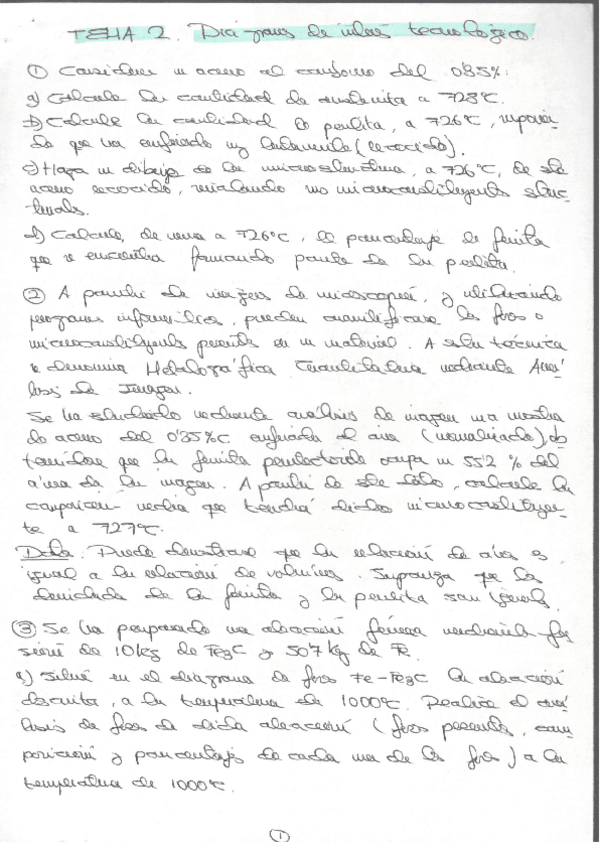 TEMA 2. Diagramas de interés tecnológico.
① Considere un acero al carbono del 0'35%:
a) Calcule la cantidad de austenita a 728ºC.
b) Calcule la cantidad de perlita, a 726ºC, suponien-
do que ha enfriado muy lentamente (recocido).
c) Haga un dibujo de la microestructura, a 726ºC, de este
acero recocido, señalando sus microconstituyentes estruc-
turales.
d) Calcule, de nuevo a 726ºC, el porcentaje de ferrita
que se encuentra formando parte de la perlita.
② A partir de imágenes de microscopía, y utilizando
programas informáticos, pueden cuantificarse las fases o
microconstituyentes presentes en un material. A esta técnica
se denomina Metalográfica Cuantitativa mediante Aná-
lisis de Imagen.
Se ha estudiado mediante análisis de imagen una muestra
de acero del 0'35%C enfriada al aire (normalizado), ob-
teniéndose que la ferrita proeutectoide ocupa un 55'2 % del
área de la imagen. A partir de este dato, calcule la
composición media que tendrá dicho microconstituyen-
te a 727ºC.
Dato. Puede demostrarse que la relación de áreas es
igual a la relación de volúmenes. Suponga que las
densidades de la ferrita y la perlita son iguales.
③ Se ha preparado una aleación férrea mediante fu-
sión de 10kg de Fe3C y 50'7 kg de Fe.
a) Sitúe en el diagrama de fases Fe-Fe3C la aleación
descrita, a la temperatura de 1000ºC. Realice el aná-
lisis de fases de dicha aleación (fases presentes, com-
posición y porcentaje de cada una de las fases) a la
temperatura de 1000ºC.
①